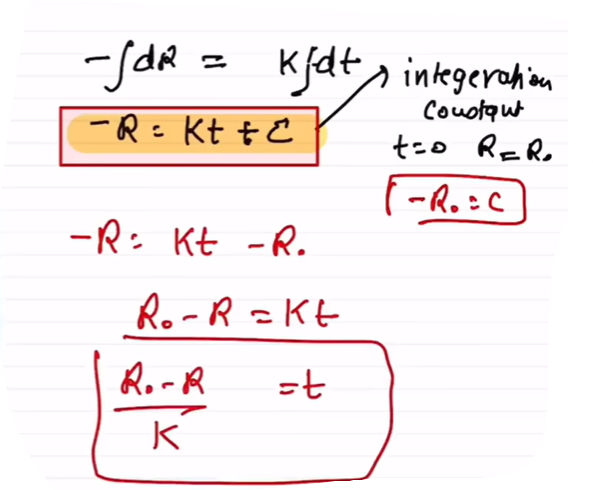 -∫dR = K∫dt
-R = Kt + C
integeration
constant
t=0 R=R₀
-R₀ = C
-R = Kt - R₀
R₀ - R = Kt
R₀ - R = t
K